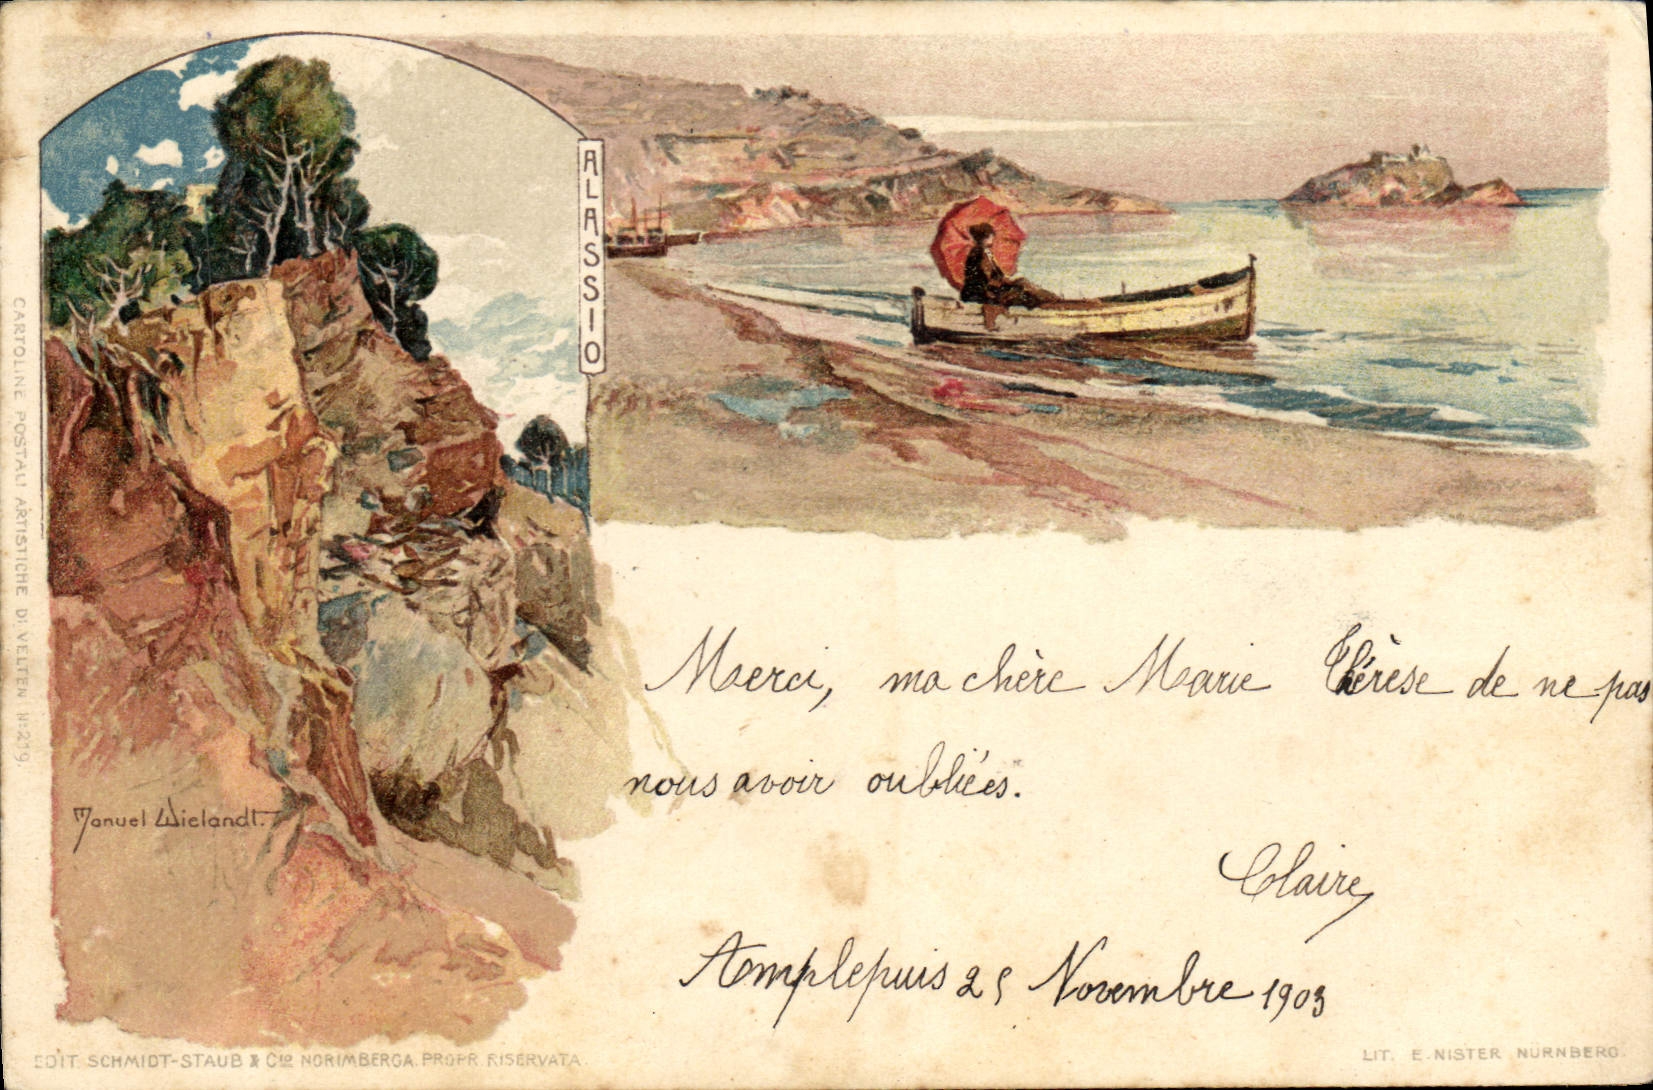 ALASSIO
CARTOLINE POSTALI ARTISTICHE DI VELTEN Nº 219.
Manuel Wielandt.
Merci, ma chère Marie Thérèse de ne pas
nous avoir oubliées.
Claire
Amplepuis 25 Novembre 1903
EDIT. SCHMIDT-STAUB & Cio NORIMBERGA. PROPR. RISERVATA.
LIT. E. NISTER NÜRNBERG.